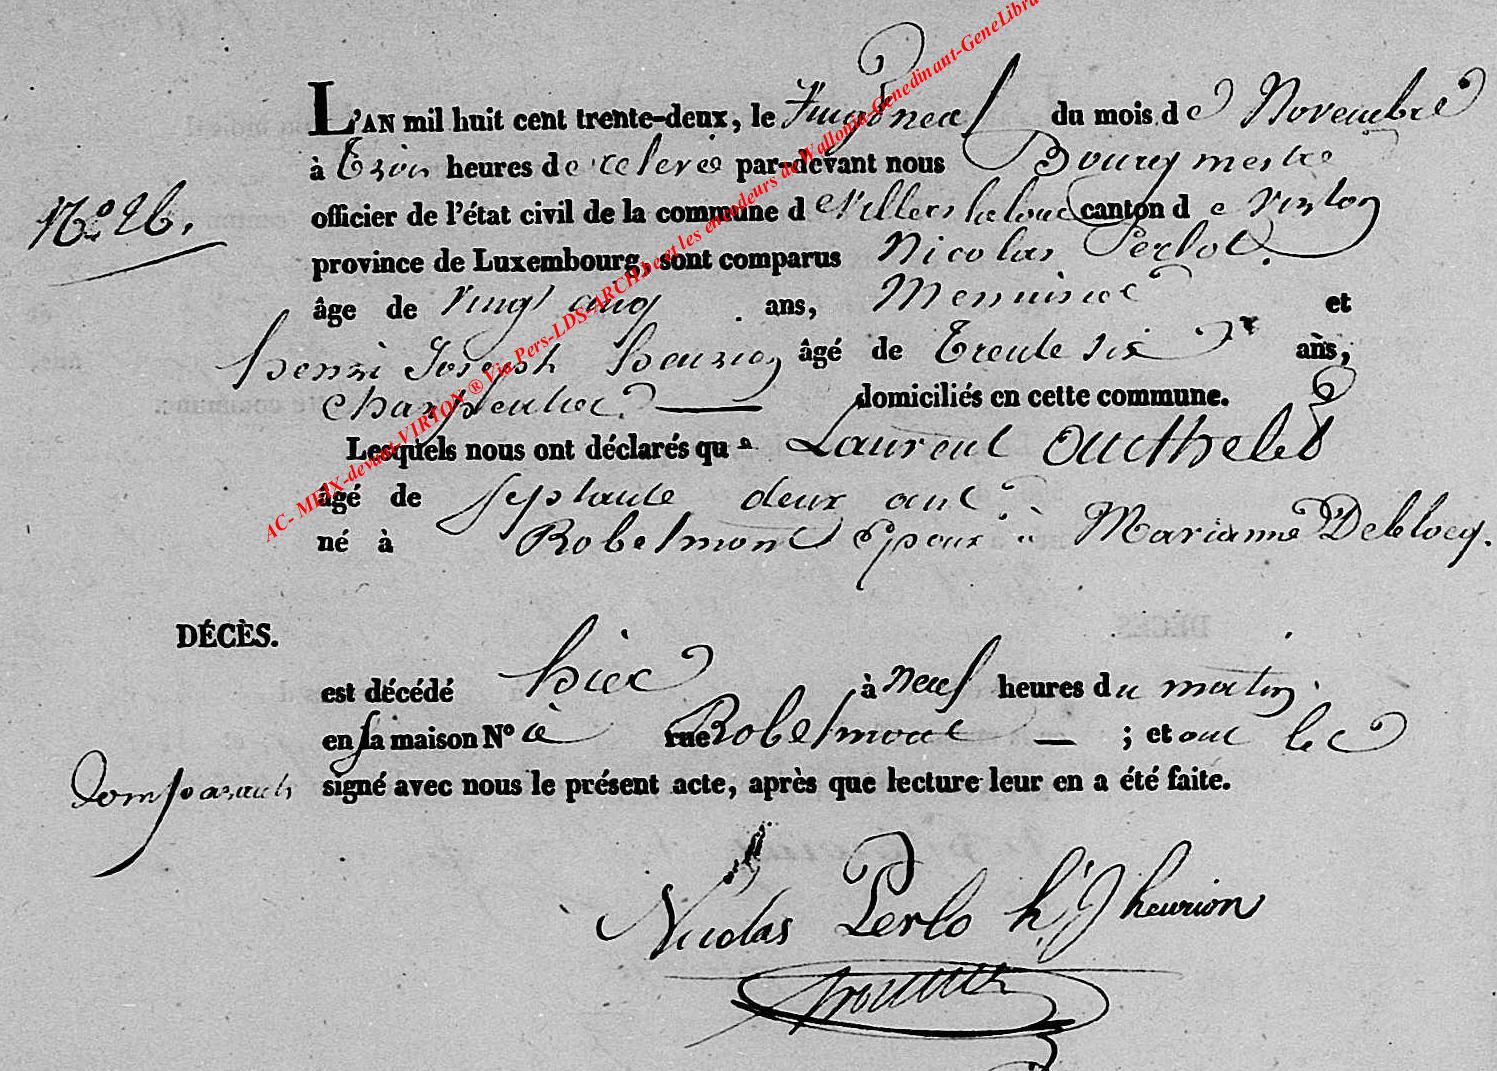 L'AN mil huit cent trente-deux, le vingt neuf du mois de Novembre
à trois heures de relevé par-devant nous Bourgmestre
N° 26.
officier de l'état civil de la commune de Villers la loue canton de Virton
province de Luxembourg, sont comparus Nicolas Perlot.
âge de vingt cinq ans, Menuisier et
henri Joseph hourion âgé de trente six ans,
Charpentier domiciliés en cette commune.
Lesquels nous ont déclarés que Laurent Outhelet
âgé de septante deux ans
né à Robelmont Epoux à Marianne Deblocq.
DÉCÈS.
est décédé hier à neuf heures du matin.
en sa maison N° à rue Robelmont ; et ont les
Comparants signé avec nous le présent acte, après que lecture leur en a été faite.
Nicolas Perlo h J heurion
AC- MEIX-devant-VIRTON ® Via Pers-LDS-ARCH.be et les encodeurs de Wallonia-Genedinant-GeneLibra